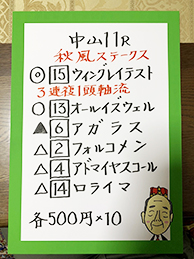 中山11R
秋風ステークス
◎15ウィングレイテスト
3連複1頭軸流
○13オールイズウェル
▲6アガラス
△2フォルコメン
△4アドマイヤスコール
△14ロライマ
各500円×10